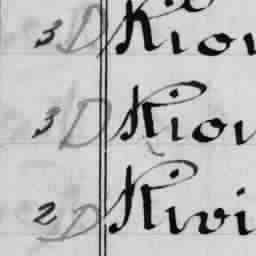 3 D Kiou
3 D Kiou
2 D Kivi